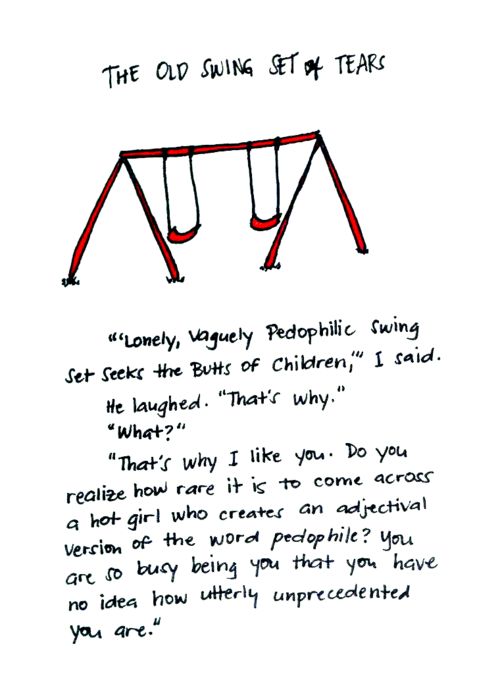 THE OLD SWING SET of TEARS
"“Lonely, Vaguely Pedophilic Swing
Set Seeks the Butts of Children,”" I said.
He laughed. "That's why."
"What?"
"That's why I like you. Do you
realize how rare it is to come across
a hot girl who creates an adjectival
version of the word pedophile? You
are so busy being you that you have
no idea how utterly unprecedented
you are."